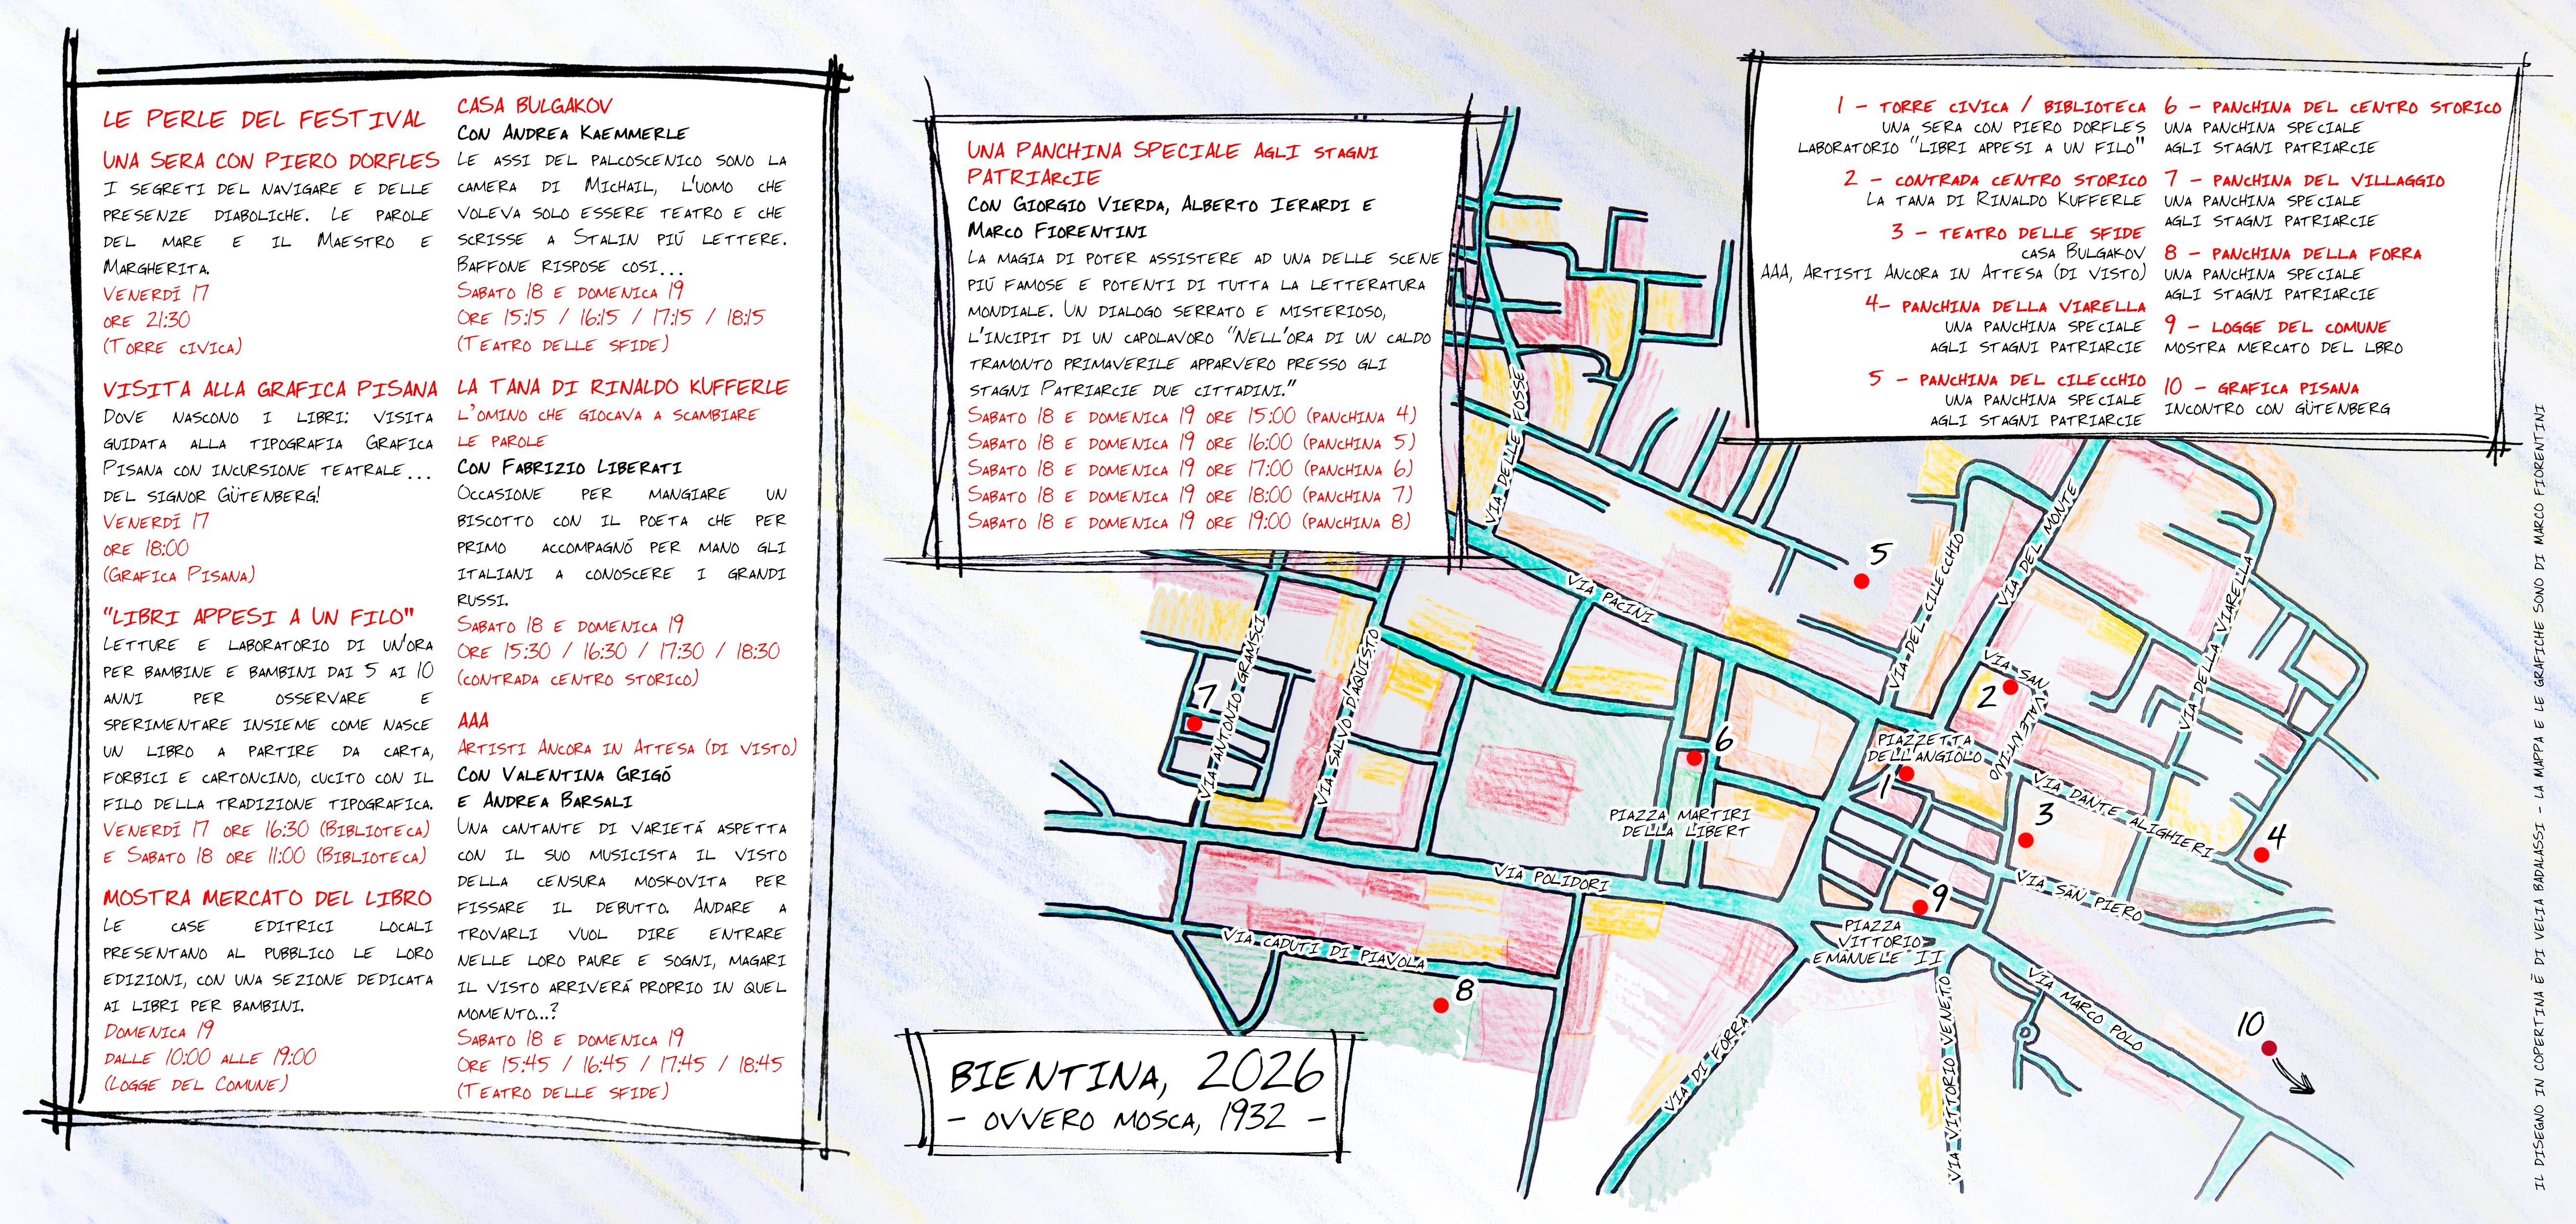 LE PERLE DEL FESTIVAL
UNA SERA CON PIERO DORFLES
I SEGRETI DEL NAVIGARE E DELLE
PRESENZE DIABOLICHE. LE PAROLE
DEL MARE E IL MAESTRO E
MARGHERITA.
VENERDÍ 17
ORE 21:30
(TORRE CIVICA)
VISITA ALLA GRAFICA PISANA
DOVE NASCONO I LIBRI: VISITA
GUIDATA ALLA TIPOGRAFIA GRAFICA
PISANA CON INCURSIONE TEATRALE...
DEL SIGNOR GÜTENBERG!
VENERDÍ 17
ORE 18:00
(GRAFICA PISANA)
"LIBRI APPESI A UN FILO"
LETTURE E LABORATORIO DI UN'ORA
PER BAMBINE E BAMBINI DAI 5 AI 10
ANNI PER OSSERVARE E
SPERIMENTARE INSIEME COME NASCE
UN LIBRO A PARTIRE DA CARTA,
FORBICI E CARTONCINO, CUCITO CON IL
FILO DELLA TRADIZIONE TIPOGRAFICA.
VENERDÍ 17 ORE 16:30 (BIBLIOTECA)
E SABATO 18 ORE 11:00 (BIBLIOTECA)
MOSTRA MERCATO DEL LIBRO
LE CASE EDITRICI LOCALI
PRESENTANO AL PUBBLICO LE LORO
EDIZIONI, CON UNA SEZIONE DEDICATA
AI LIBRI PER BAMBINI.
DOMENICA 19
DALLE 10:00 ALLE 19:00
(LOGGE DEL COMUNE)
CASA BULGAKOV
CON ANDREA KAEMMERLE
LE ASSI DEL PALCOSCENICO SONO LA
CAMERA DI MICHAIL, L'UOMO CHE
VOLEVA SOLO ESSERE TEATRO E CHE
SCRISSE A STALIN PIÚ LETTERE.
BAFFONE RISPOSE COSI...
SABATO 18 E DOMENICA 19
ORE 15:15 / 16:15 / 17:15 / 18:15
(TEATRO DELLE SFIDE)
LA TANA DI RINALDO KUFFERLE
L'OMINO CHE GIOCAVA A SCAMBIARE
LE PAROLE
CON FABRIZIO LIBERATI
OCCASIONE PER MANGIARE UN
BISCOTTO CON IL POETA CHE PER
PRIMO ACCOMPAGNÓ PER MANO GLI
ITALIANI A CONOSCERE I GRANDI
RUSSI.
SABATO 18 E DOMENICA 19
ORE 15:30 / 16:30 / 17:30 / 18:30
(CONTRADA CENTRO STORICO)
AAA
ARTISTI ANCORA IN ATTESA (DI VISTO)
CON VALENTINA GRIGÓ
E ANDREA BARSALI
UNA CANTANTE DI VARIETÁ ASPETTA
CON IL SUO MUSICISTA IL VISTO
DELLA CENSURA MOSKOVITA PER
FISSARE IL DEBUTTO. ANDARE A
TROVARLI VUOL DIRE ENTRARE
NELLE LORO PAURE E SOGNI, MAGARI
IL VISTO ARRIVERÁ PROPRIO IN QUEL
MOMENTO...?
SABATO 18 E DOMENICA 19
ORE 15:45 / 16:45 / 17:45 / 18:45
(TEATRO DELLE SFIDE)
UNA PANCHINA SPECIALE AGLI STAGNI
PATRIARCIE
CON GIORGIO VIERDA, ALBERTO IERARDI E
MARCO FIORENTINI
LA MAGIA DI POTER ASSISTERE AD UNA DELLE SCENE
PIÚ FAMOSE E POTENTI DI TUTTA LA LETTERATURA
MONDIALE. UN DIALOGO SERRATO E MISTERIOSO,
L'INCIPIT DI UN CAPOLAVORO "NELL'ORA DI UN CALDO
TRAMONTO PRIMAVERILE APPARVERO PRESSO GLI
STAGNI PATRIARCIE DUE CITTADINI."
SABATO 18 E DOMENICA 19 ORE 15:00 (PANCHINA 4)
SABATO 18 E DOMENICA 19 ORE 16:00 (PANCHINA 5)
SABATO 18 E DOMENICA 19 ORE 17:00 (PANCHINA 6)
SABATO 18 E DOMENICA 19 ORE 18:00 (PANCHINA 7)
SABATO 18 E DOMENICA 19 ORE 19:00 (PANCHINA 8)
1 - TORRE CIVICA / BIBLIOTECA
UNA SERA CON PIERO DORFLES
LABORATORIO "LIBRI APPESI A UN FILO"
2 - CONTRADA CENTRO STORICO
LA TANA DI RINALDO KUFFERLE
3 - TEATRO DELLE SFIDE
CASA BULGAKOV
AAA, ARTISTI ANCORA IN ATTESA (DI VISTO)
4- PANCHINA DELLA VIARELLA
UNA PANCHINA SPECIALE
AGLI STAGNI PATRIARCIE
5 - PANCHINA DEL CILECCHIO
UNA PANCHINA SPECIALE
AGLI STAGNI PATRIARCIE
6 - PANCHINA DEL CENTRO STORICO
UNA PANCHINA SPECIALE
AGLI STAGNI PATRIARCIE
7 - PANCHINA DEL VILLAGGIO
UNA PANCHINA SPECIALE
AGLI STAGNI PATRIARCIE
8 - PANCHINA DELLA FORRA
UNA PANCHINA SPECIALE
AGLI STAGNI PATRIARCIE
9 - LOGGE DEL COMUNE
MOSTRA MERCATO DEL LBRO
10 - GRAFICA PISANA
INCONTRO CON GÜTENBERG
VIA DELLE FOSSE
VIA PACINI
5
VIA DEL CILECCHIO
VIA DEL MONTE
VIA DELLA VIARELLA
VIA ANTONIO GRAMSCI
VIA SALVO D'AQUISTO
7
6
2
VIA SAN VALENTINO
PIAZZETTA
DELL'ANGIOLO
1
VIA DANTE ALIGHIERI
3
4
PIAZZA MARTIRI
DELLA LIBERT
VIA POLIDORI
VIA SAN PIERO
9
PIAZZA
VITTORIO
EMANUELE II
VIA CADUTI DI PIAVOLA
8
VIA DI FORRA
VIA VITTORIO VENETO
VIA MARCO POLO
10
BIENTINA, 2026
- OVVERO MOSCA, 1932 -
IL DISEGNO IN COPERTINA È DI VELIA BADALASSI - LA MAPPA E LE GRAFICHE SONO DI MARCO FIORENTINI